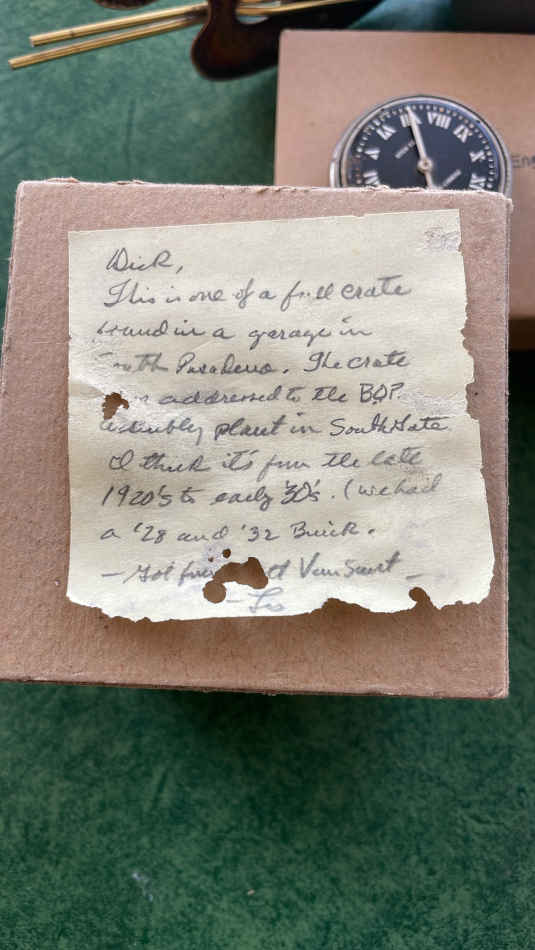 Dick,
This is one of a full crate
found in a garage in
South Pasadena. The crate
addressed to the BOP
assembly plant in South Gate.
I think it's from the late
1920's to early '30's. (we had
a '28 and '32 Buick.
— Got from
—
VIII
IX
X
Eng